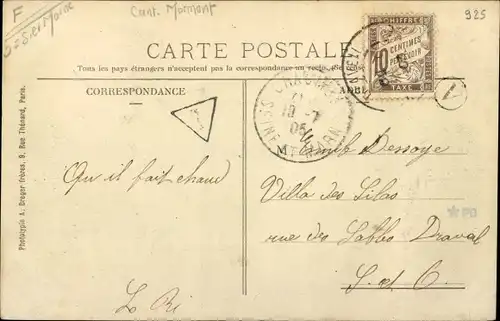 F
Seine et Marne
Cant. Mormant
925
CARTE POSTALE
Tous les pays étrangers n'acceptent pas la correspondance au recto, se
CORRESPONDANCE
CHIFFRE
10 CENTIMES
À PERCEVOIR
TAXE
SEINE ET MARNE
18 -7
05
Qu'il fait chaud
Emile Dessoye
Villa des Lilas
rue des Sables Draveil
S. et O.
Phototypie A. Breger frères, 9, Rue Thénard, Paris.